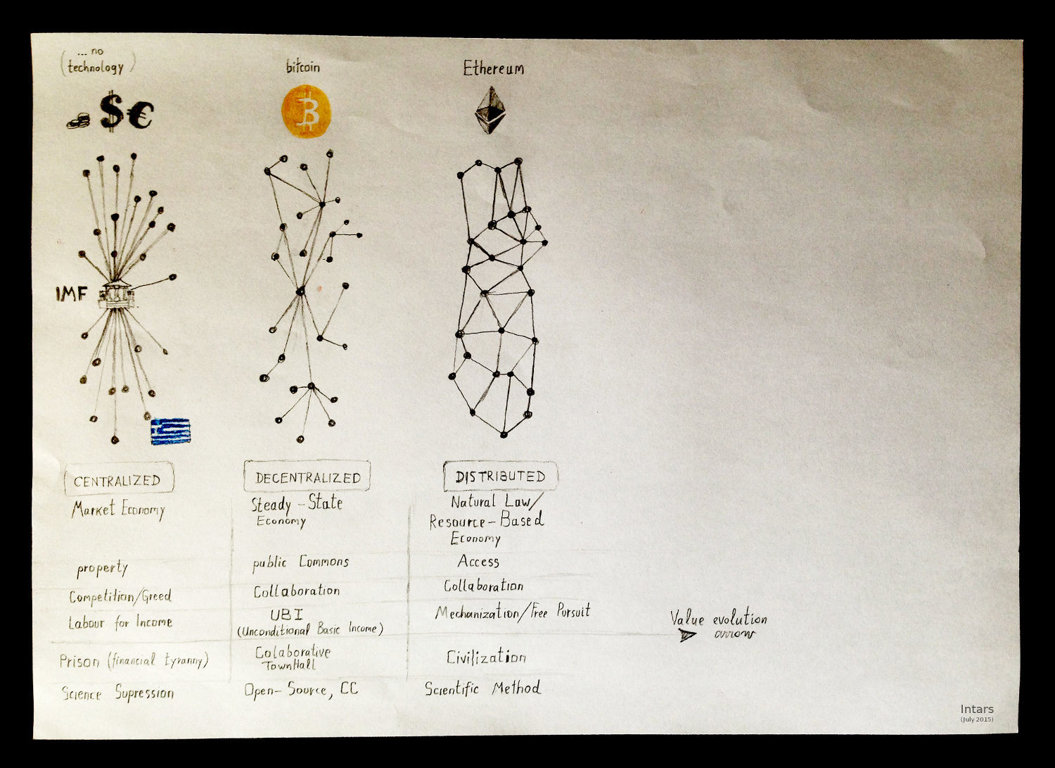 (... no
technology)
bitcoin
Ethereum
$ €
B
IMF
CENTRALIZED
DECENTRALIZED
DISTRIBUTED
Market Economy
Steady-State
Economy
Natural Law/
Resource-Based
Economy
property
public Commons
Access
Competition/Greed
Collaboration
Collaboration
Labour for Income
UBI
(Unconditional Basic Income)
Mechanization/Free Pursuit
Value evolution
arrow
Prison (financial tyranny)
Colaborative
TownHall
Civilization
Science Supression
Open-Source, CC
Scientific Method
Intars
(July 2015)